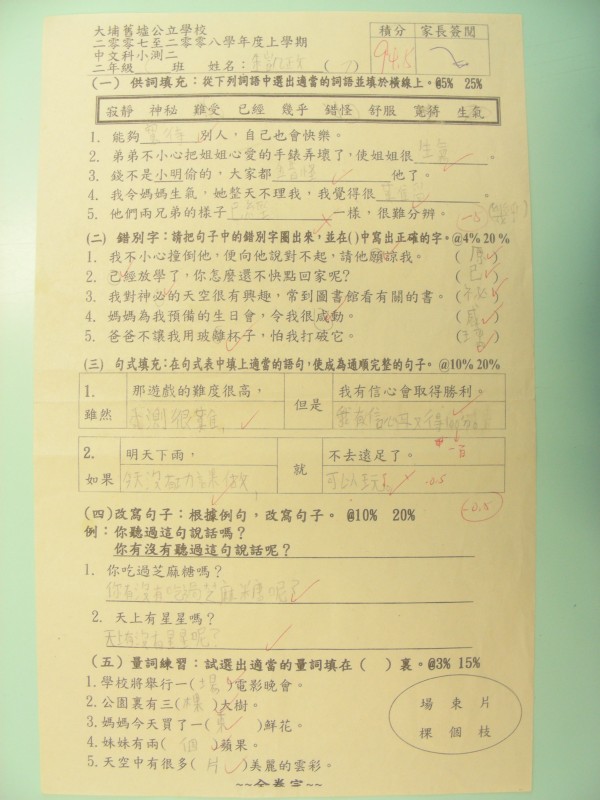 大埔舊墟公立學校
二零零七至二零零八學年度上學期
中文科小測二
二年級 班 姓名： ( )
積分 家長簽閱
94.5
(一) 供詞填充：從下列詞語中選出適當的詞語並填於橫線上。@5% 25%
寂靜 神秘 難受 已經 幾乎 錯怪 舒服 寬猗 生氣
1. 能夠 別人，自己也會快樂。
2. 弟弟不小心把姐姐心愛的手錶弄壞了，使姐姐很生氣。
3. 錢不是小明偷的，大家都錯怪他了。
4. 我令媽媽生氣，她整天不理我，我覺得很 。
5. 他們兩兄弟的樣子 一樣，很難分辨。
-5
(二) 錯別字：請把句子中的錯別字圈出來，並在( )中寫出正確的字。@4% 20%
1. 我不小心撞倒他，便向他說對不起，請他願諒我。 (原)
2. 己經放學了，你怎麼還不快點回家呢？ (已)
3. 我對神必的天空很有興趣，常到圖書館看有關的書。 (祕)
4. 媽媽為我預備的生日會，令我很感動。 ( )
5. 爸爸不讓我用玻離杯子，怕我打破它。 (璃)
(三) 句式填充：在句式表中填上適當的語句，使成為通順完整的句子。@10% 20%
1. 那遊戲的難度很高， 但是 我有信心會取得勝利。
雖然 小測很難， 我有信心
一百
2. 明天下雨， 就 不去遠足了。
如果 今天沒有功課做， 可以去玩。 -0.5
-0.5
(四) 改寫句子：根據例句，改寫句子。 @10% 20%
例：你聽過這句說話嗎？
你有沒有聽過這句說話呢？
1. 你吃過芝麻糖嗎？
你有沒有吃過芝麻糖呢？
2. 天上有星星嗎？
天上有沒有星星呢？
(五) 量詞練習：試選出適當的量詞填在( )裏。@3% 15%
1. 學校將舉行一(場)電影晚會。
2. 公園裏有三(棵)大樹。
3. 媽媽今天買了一(束)鮮花。
4. 妹妹有兩(個)蘋果。
5. 天空中有很多(片)美麗的雲彩。
場 束 片
棵 個 枝
~~全卷完~~